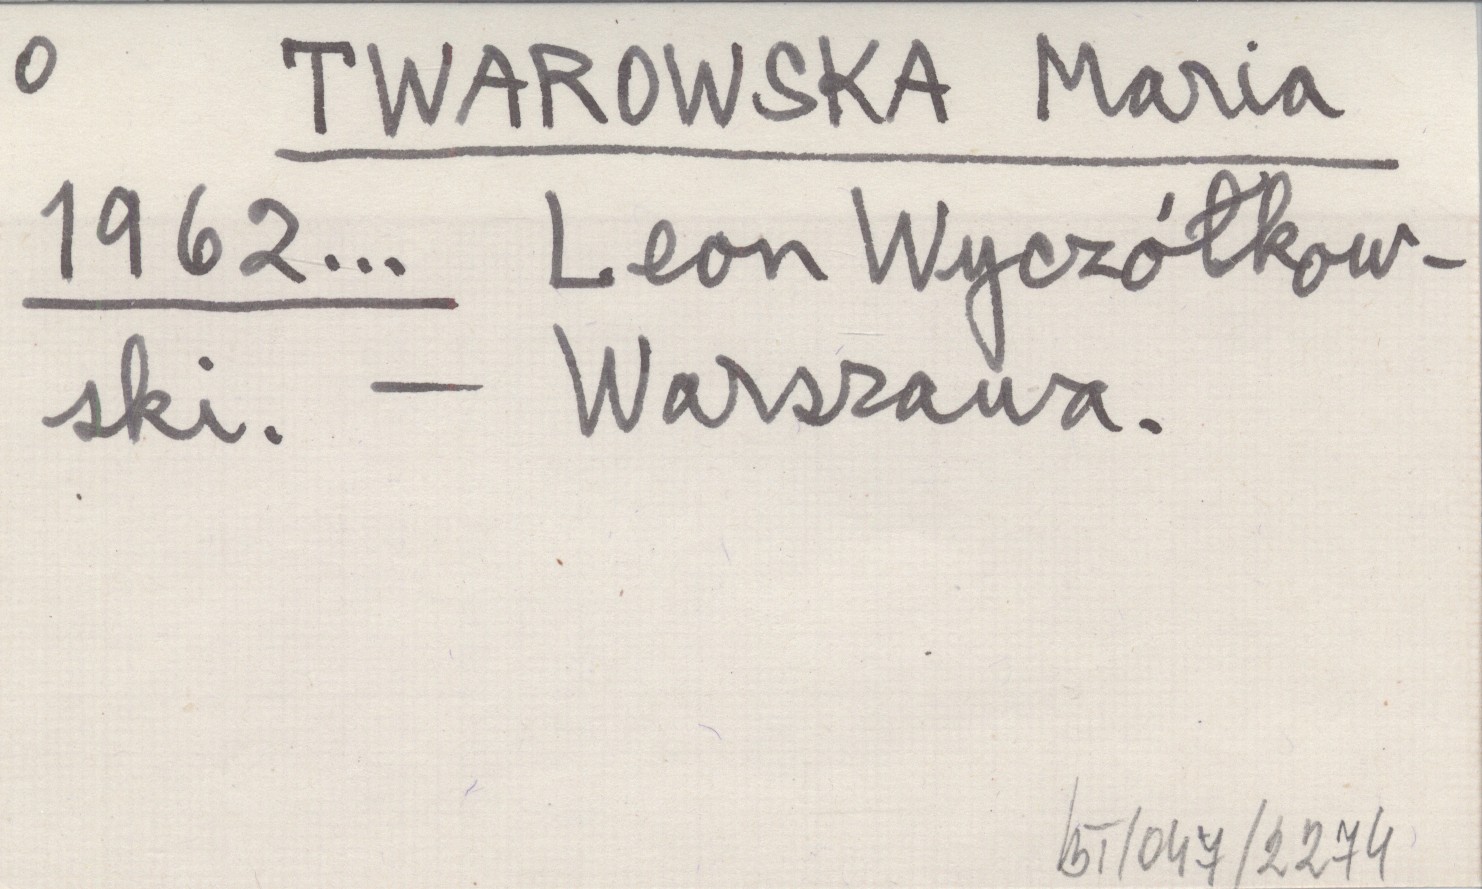 O TWAROWSKA Maria
1962... Leon Wyczółkow-
ski. — Warszawa.
/047/2274